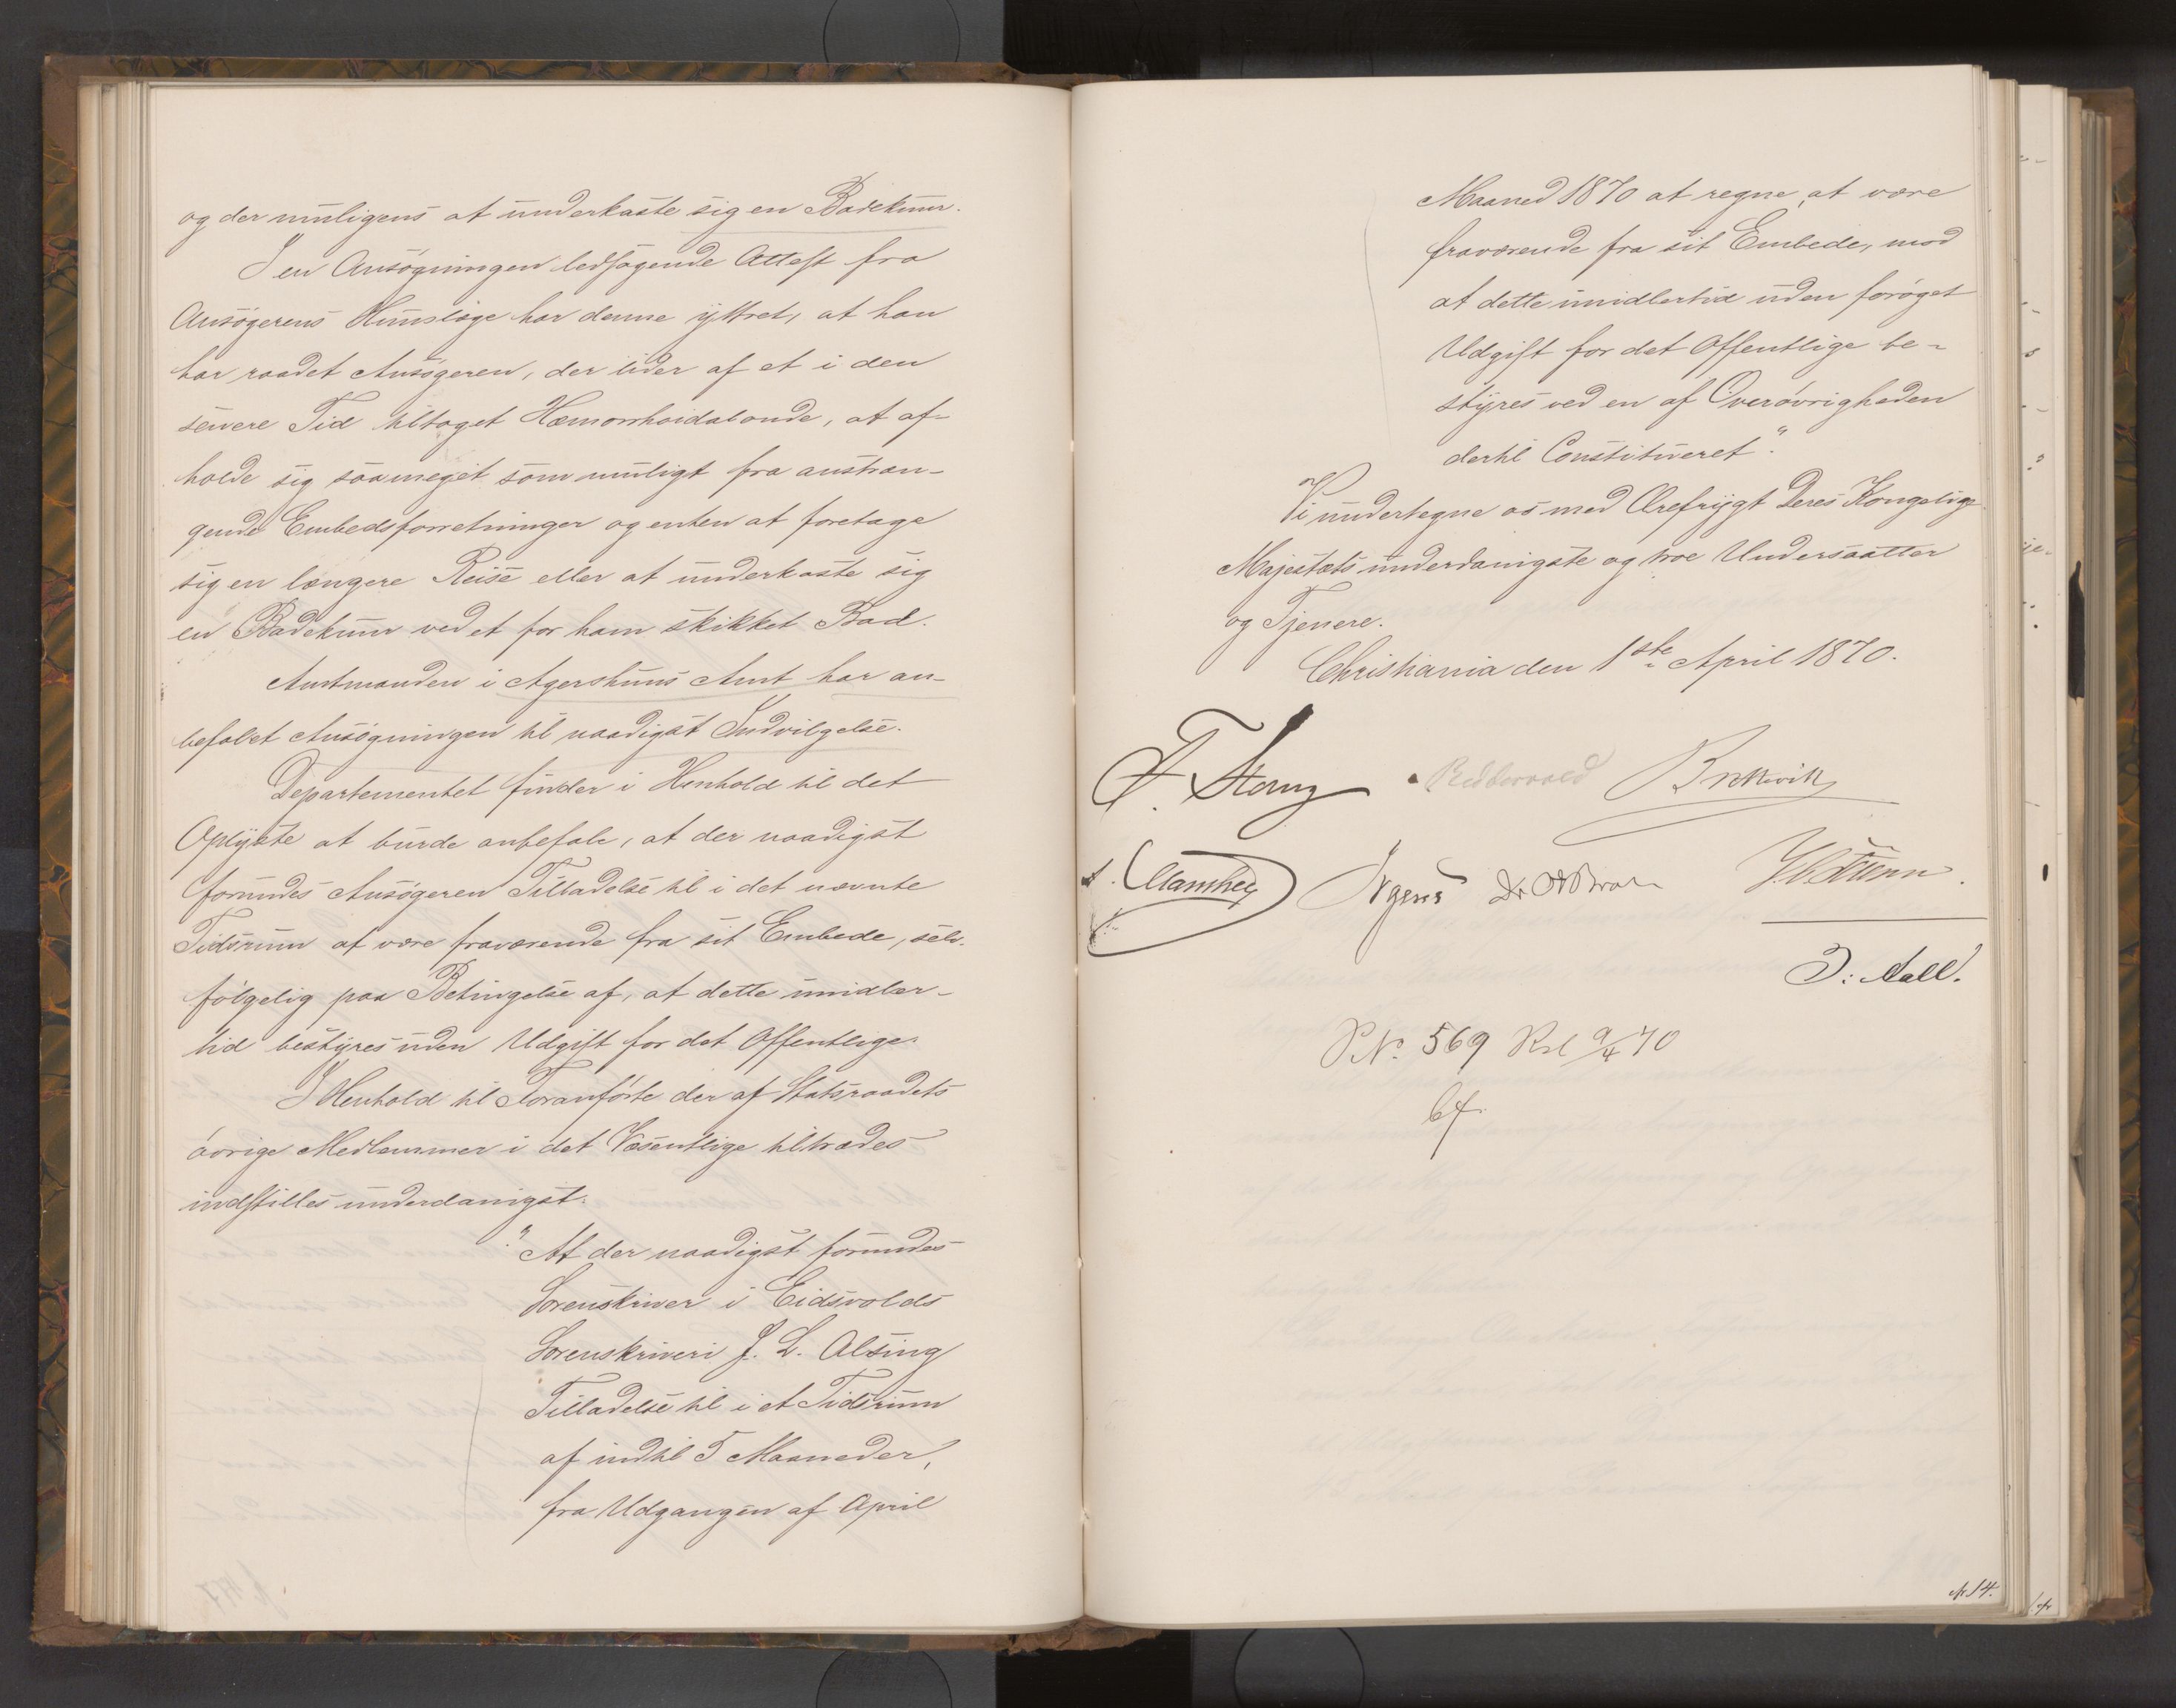 og der muligens at underkaste sig en Badekuur.
I en Ansøgningen ledsagende Attest fra
Ansøgerens Huuslæge har denne yttret, at han
har raadet Ansøgeren, der lider af et i den
senere Tid tiltaget Hæmorrhoidalonde, at af-
holde sig saameget som muligt fra anstræn-
gende Embedsforretninger og enten at foretage
sig en længere Reise eller at underkaste sig
en Badekuur ved et for ham skikket Bad.
Amtmanden i Agershuus Amt har an-
befalet Ansøgningen til naadigst Indvilgelse.
Departementet finder i Henhold til det
Oplyste at burde anbefale, at der naadigst
forundes Ansøgeren Tilladelse til i det nævnte
Tidsrum at være fraværende fra sit Embede, selv-
følgelig paa Betingelse af, at dette imidler-
tid bestyres uden Udgift for det Offentlige.
I Henhold til Foranførte der af Statsraadets
øvrige Medlemmer i det Væsentlige tiltrædes
indstilles underdanigst:
"At der naadigst forundes
Sorenskriver i Eidsvolds
Sorenskriveri J. L. Alsing
Tilladelse til i et Tidsrum
af indtil 5 Maaneder,
fra Udgangen af April
Maaned 1870 at regne, at være
fraværende fra sit Embede, mod
at dette imidlertid uden forøget
Udgift for det Offentlige be-
styres ved en af Overøvrigheden
dertil Constitueret".
Vi undertegne os med Ærefrygt Deres Kongelige
Majestæts underdanigste og troe Undersaatter
og Tjenere.
Christiania den 1ste April 1870.
F. Stang Riddervold Bretteville
Manthey Irgens
D: Aall.
P.N. 569 Rsl 9/4 70
Nr 14.